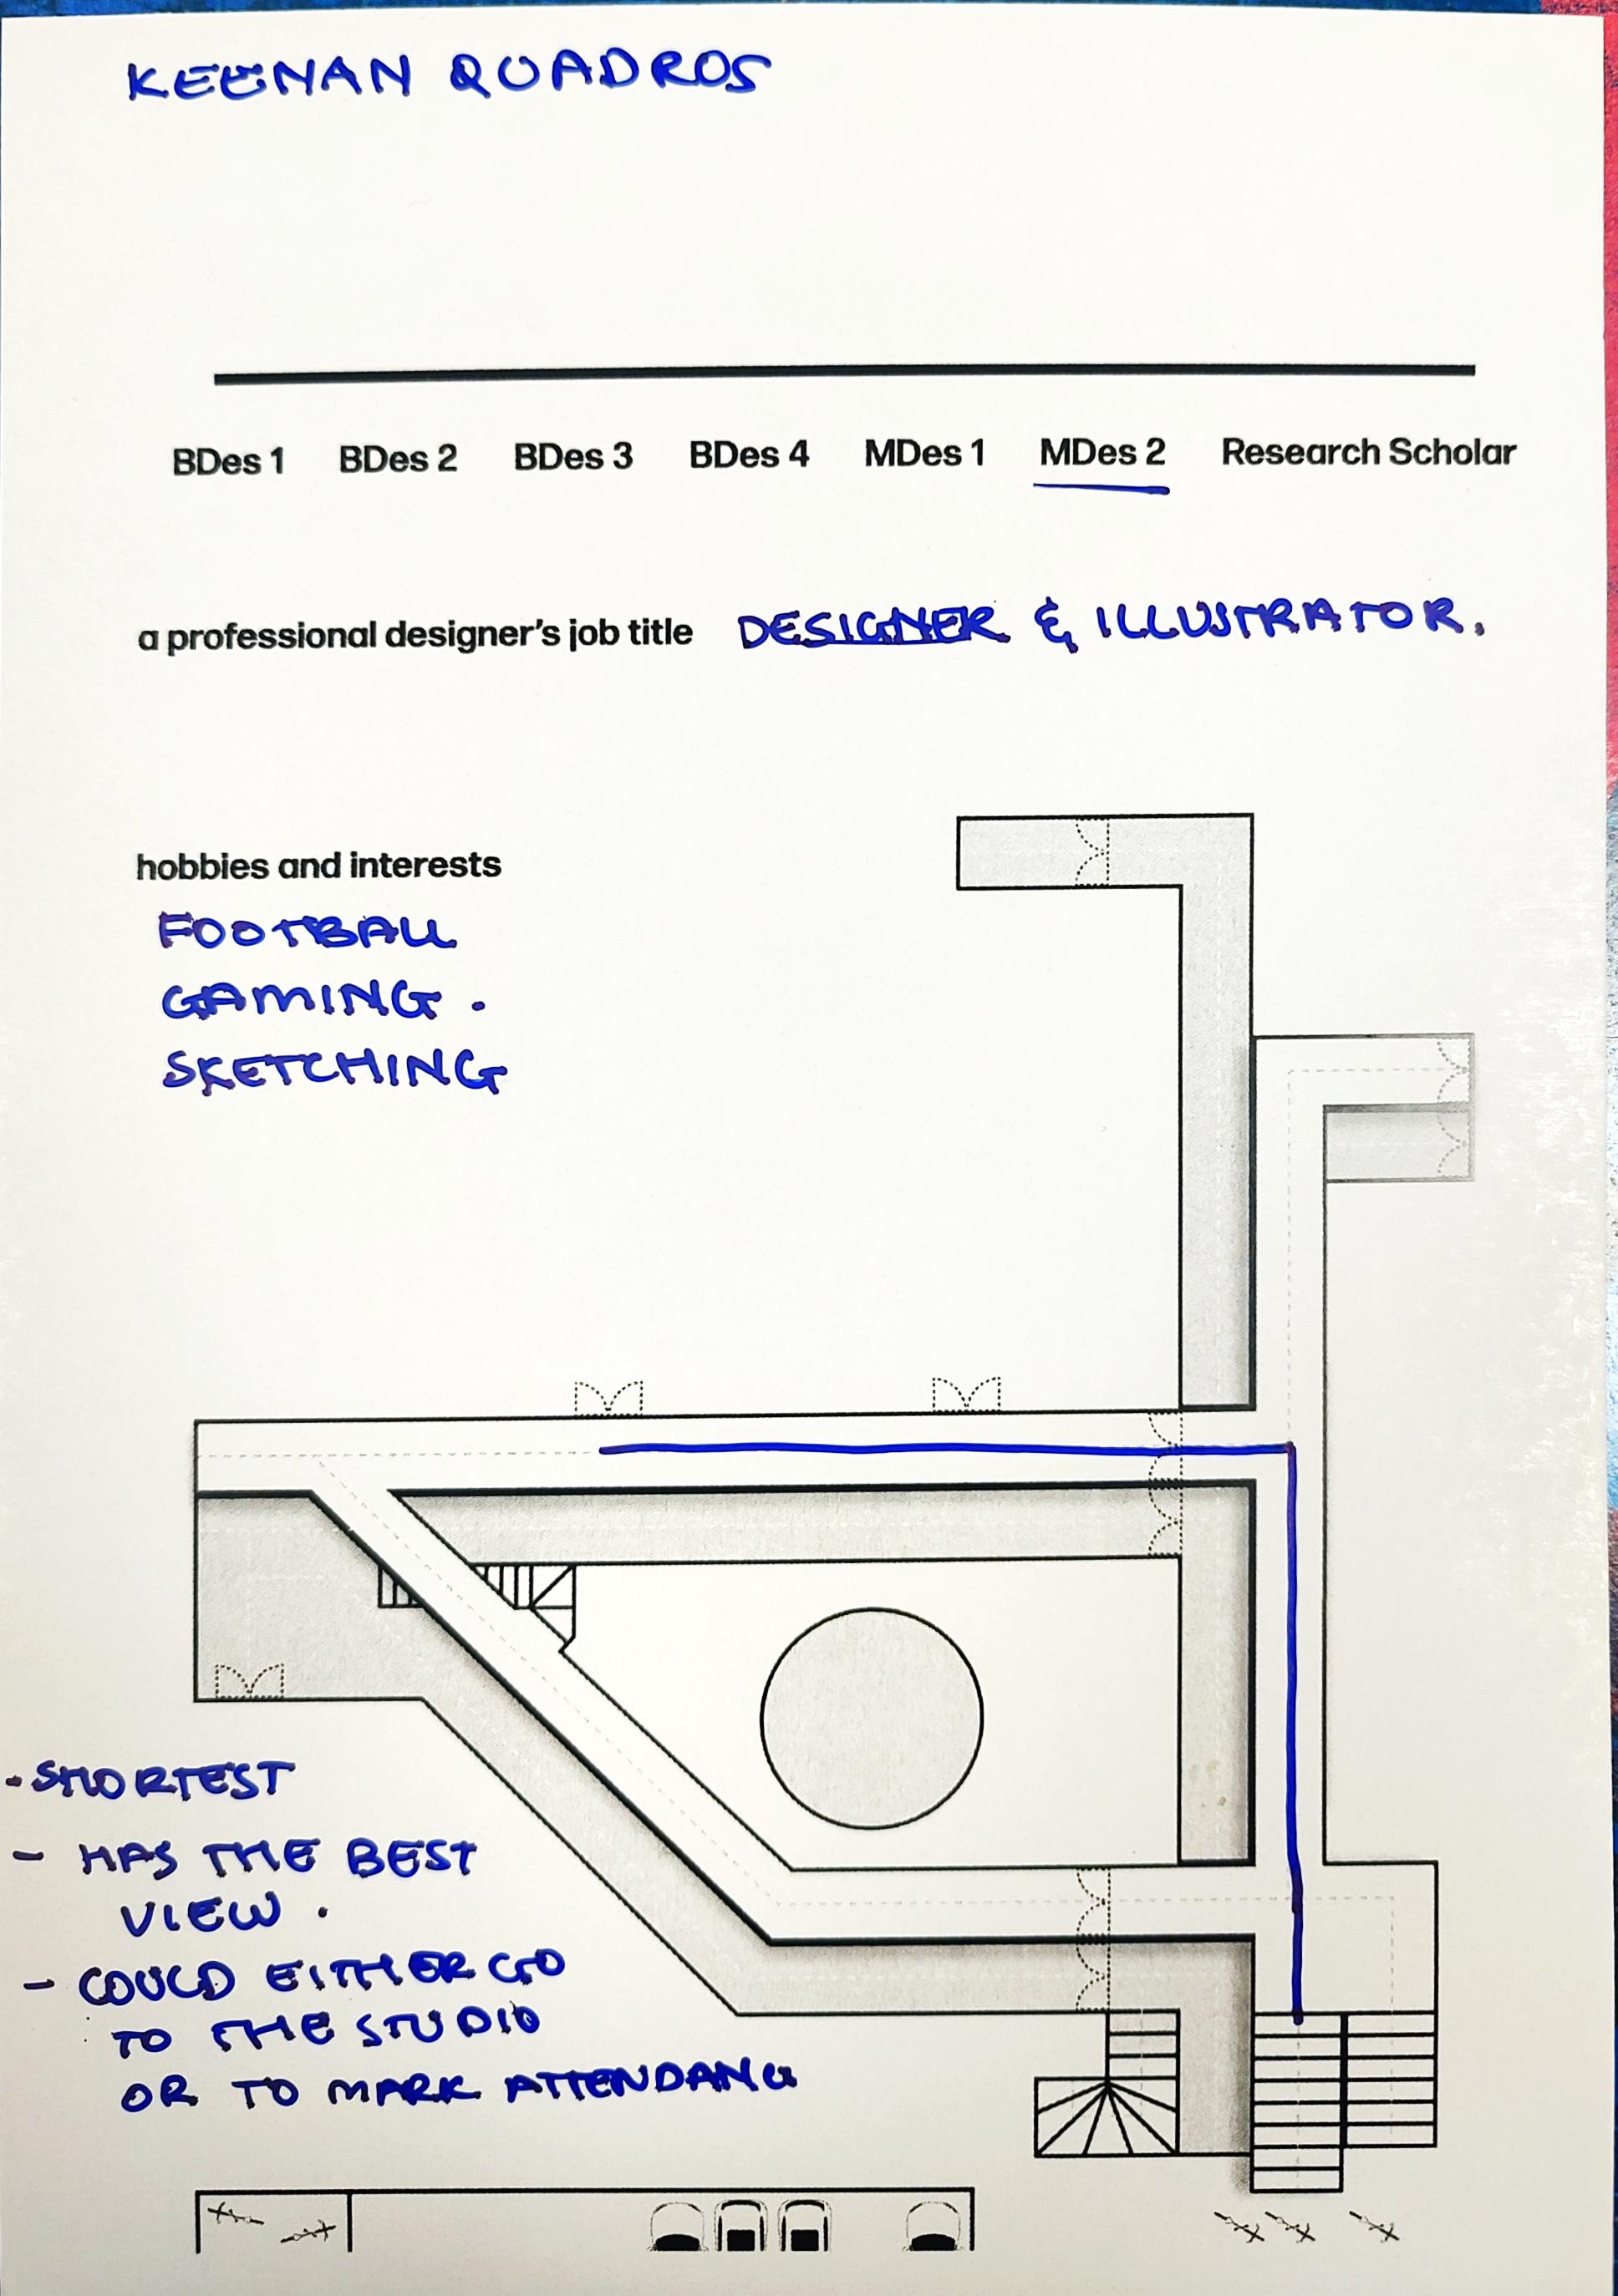 KEENAN QUADROS
BDes 1 BDes 2 BDes 3 BDes 4 MDes 1 MDes 2 Research Scholar
a professional designer's job title DESIGNER & ILLUSTRATOR.
hobbies and interests
FOOTBALL
GAMING.
SKETCHING
- SHORTEST
- HAS THE BEST
VIEW.
- COULD EITHER GO
TO THE STUDIO
OR TO MARK